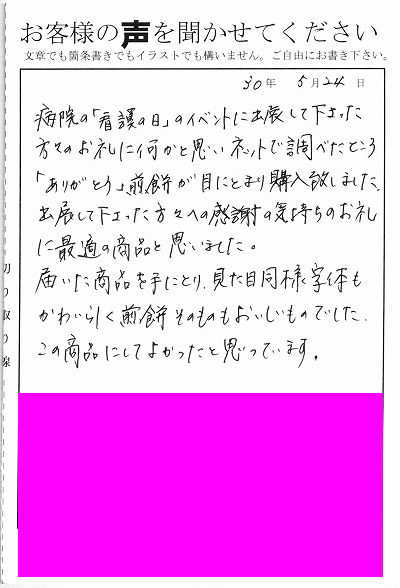 お客様の声を聞かせてください
文章でも箇条書きでもイラストでも構いません。ご自由にお書き下さい。
30年 5月24日
病院の「看護の日」のイベントに出展して下さった
方々のお礼に何かと思いネットで調べたところ
「ありがとう」煎餅が目にとまり購入致しました。
出展して下さった方々への感謝の気持ちのお礼
に最適の商品と思いました。
届いた商品を手にとり、見た目同様字体も
かわいらしく煎餅そのものもおいしいものでした。
この商品にしてよかったと思っています。
切り取り線